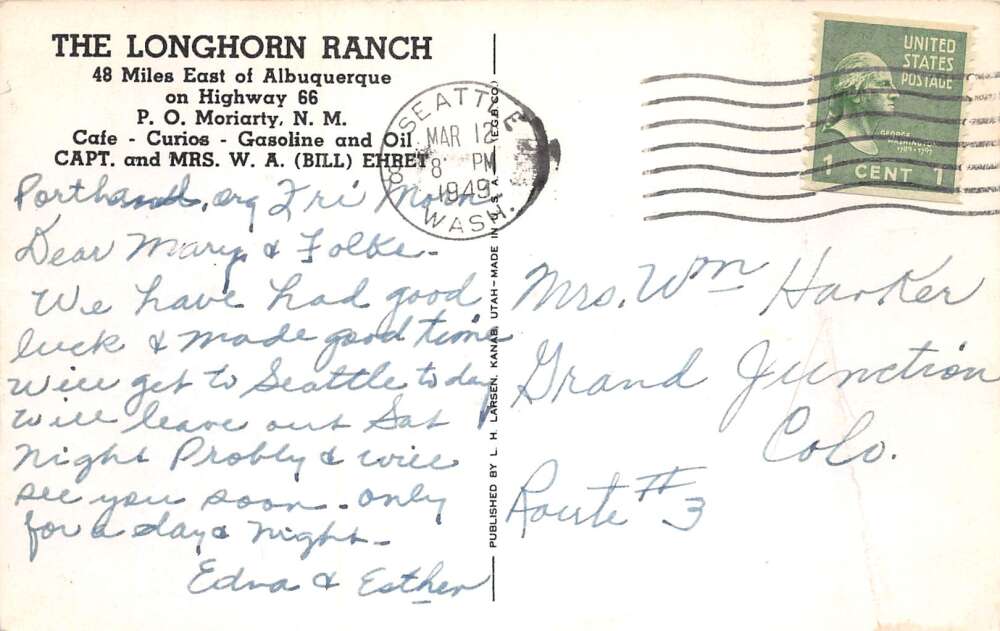 THE LONGHORN RANCH
48 Miles East of Albuquerque
on Highway 66
P. O. Moriarty, N. M.
Cafe - Curios - Gasoline and Oil
CAPT. and MRS. W. A. (BILL) EHRET
SEATTLE
MAR 12
8 PM
1949
WASH.
UNITED
STATES
POSTAGE
GEORGE
WASHINGTON
1789-1797
1 CENT 1
Portland, org Fri Morn
Dear Mary & Folks-
We have had good
luck & made good time
will get to Seattle today
will leave out Sat
night Probly & will
see you soon - only
for a day & night-
Edna & Esther
PUBLISHED BY L. H. LARSEN, KANAB, UTAH-MADE IN U. S. A. (E.G.B.CO.)
Mrs. Wm Harker
Grand Junction
Colo.
Route #3